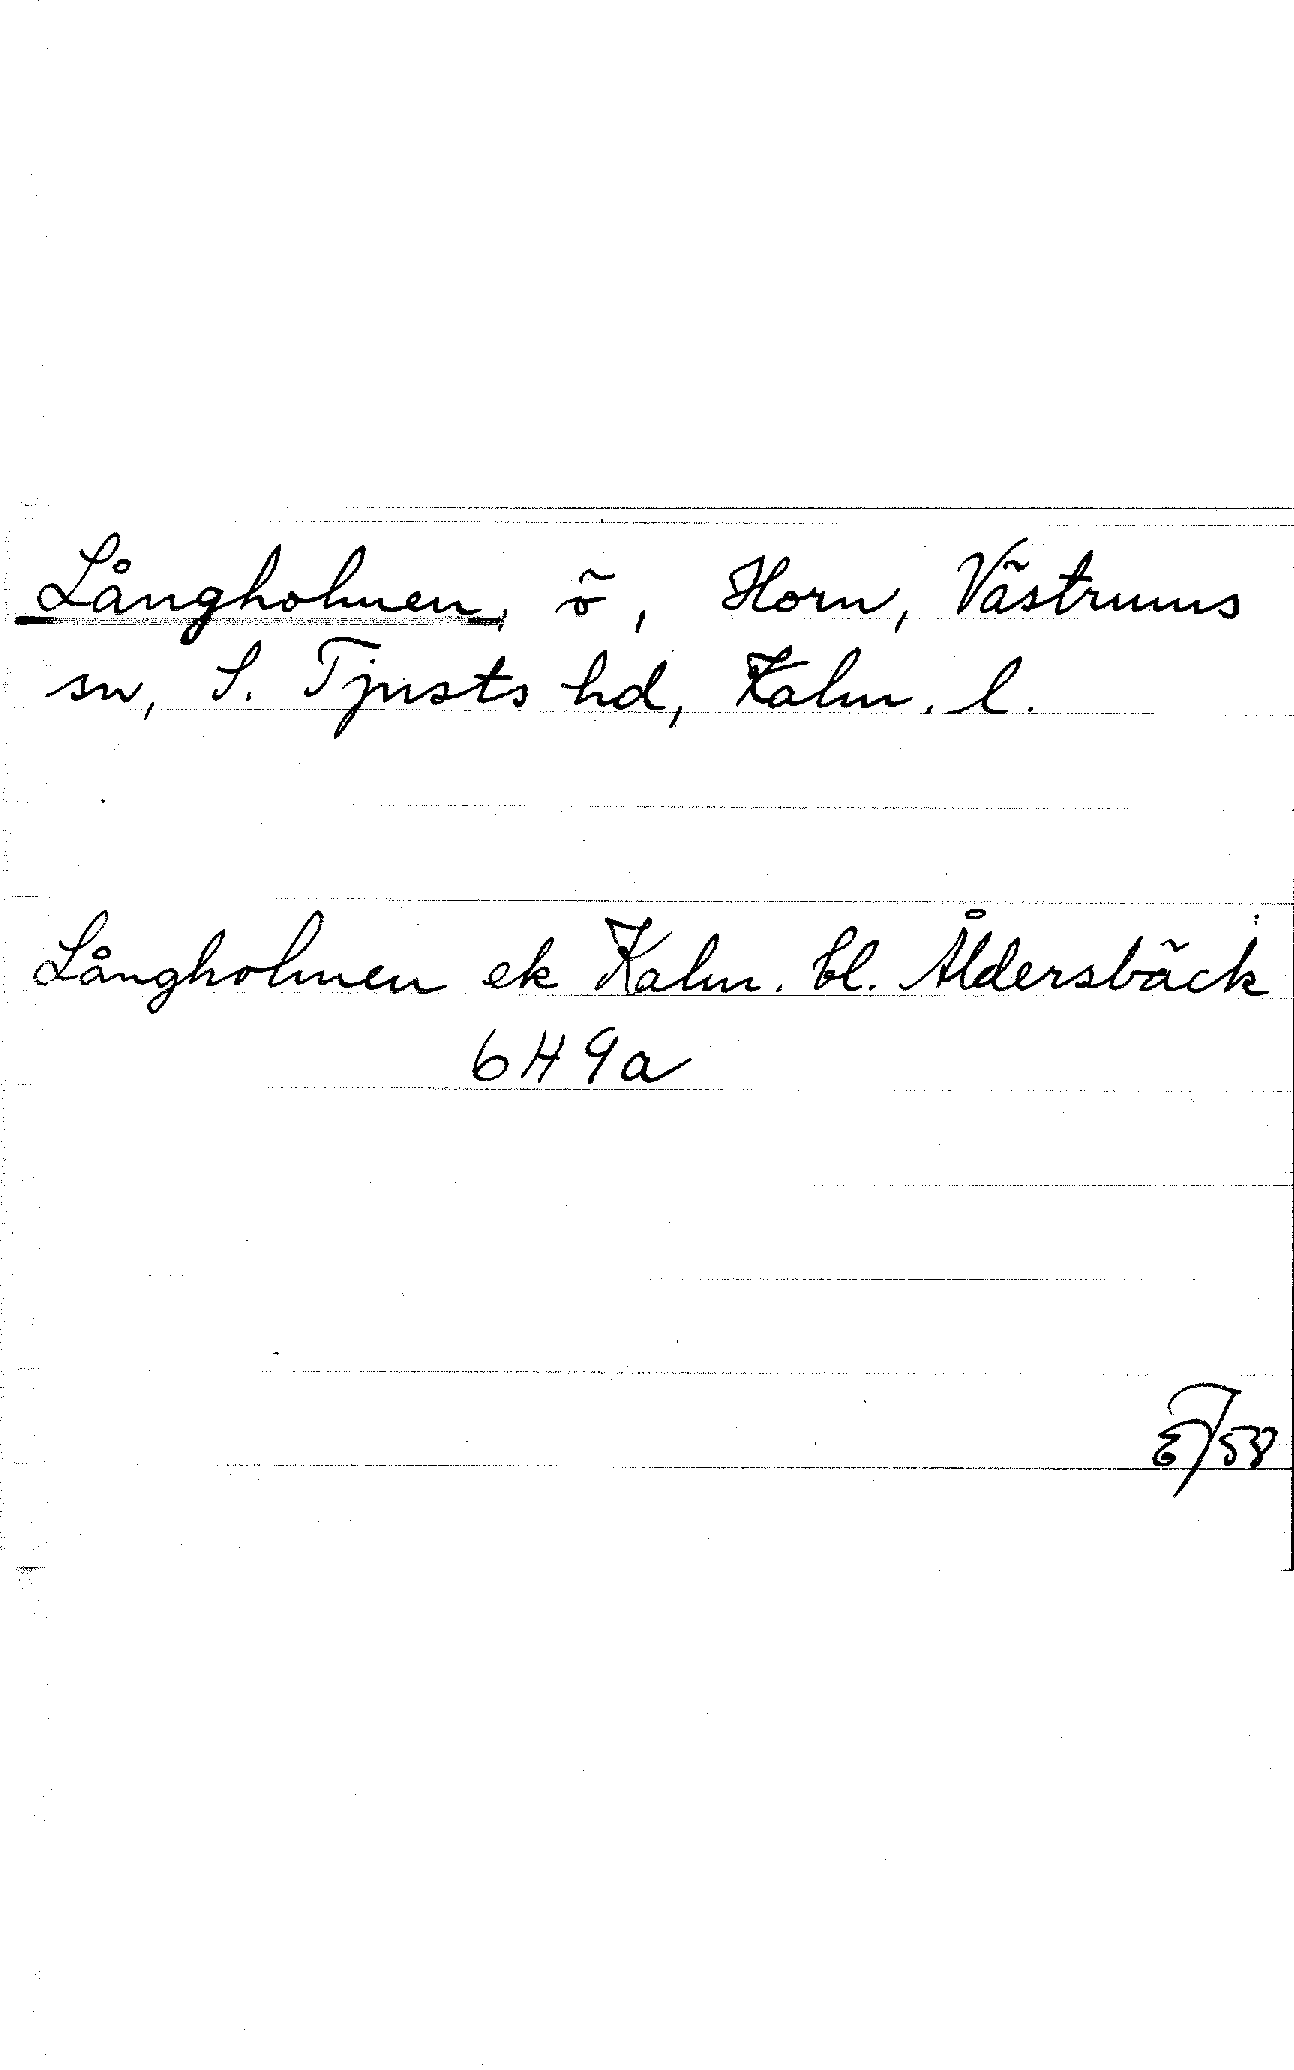 Långholmen, ö, Horn, Västrums
sn, S. Tjusts hd, Kalm. l.
Långholmen ek Kalm. bl. Åldersbäck
6H9a
/58